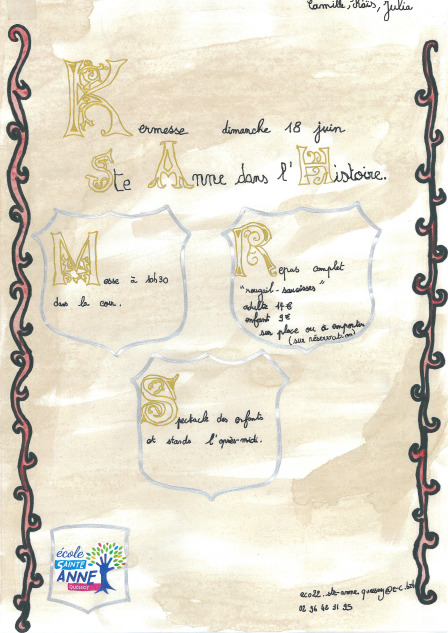 Camille, Naïs, Julia
Kermesse dimanche 18 juin
Ste Anne dans l'Histoire.
Messe à 10h30
dans la cour.
Repas complet
"rougail-saucisses"
adulte 14€
enfant 9€
sur place ou à emporter
(sur réservation)
Spectacle des enfants
et stands l'après-midi.
école
SAINTE
ANNE
QUESSOY
eco22.ste-anne.quessoy@e-c.bzh
02 96 42 31 95